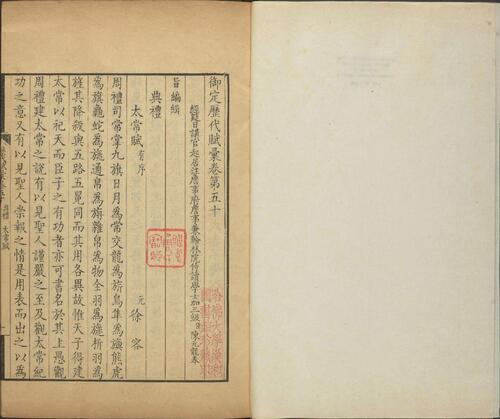 御定歷代賦彙卷第五十
經筵日講官起居注詹事府詹事兼翰林院侍讀學士加三級臣陳元龍奉
旨編緝
典禮
太常賦有序
元徐容
周禮司常掌九旗日月為常交龍為旂鳥隼為旟熊虎
為旗龜蛇為旐通帛為旃雜帛為物全羽為旞析羽為
旌其降殺與五路五冕同而其用各異故惟天子得建
太常以祀天而臣子之有功者亦可書名於其上愚觀
周禮建太常之說有以見聖人謹嚴之至及觀太常紀
功之意又有以見聖人崇報之情是用表而出之以為
典禮 太常賦
一